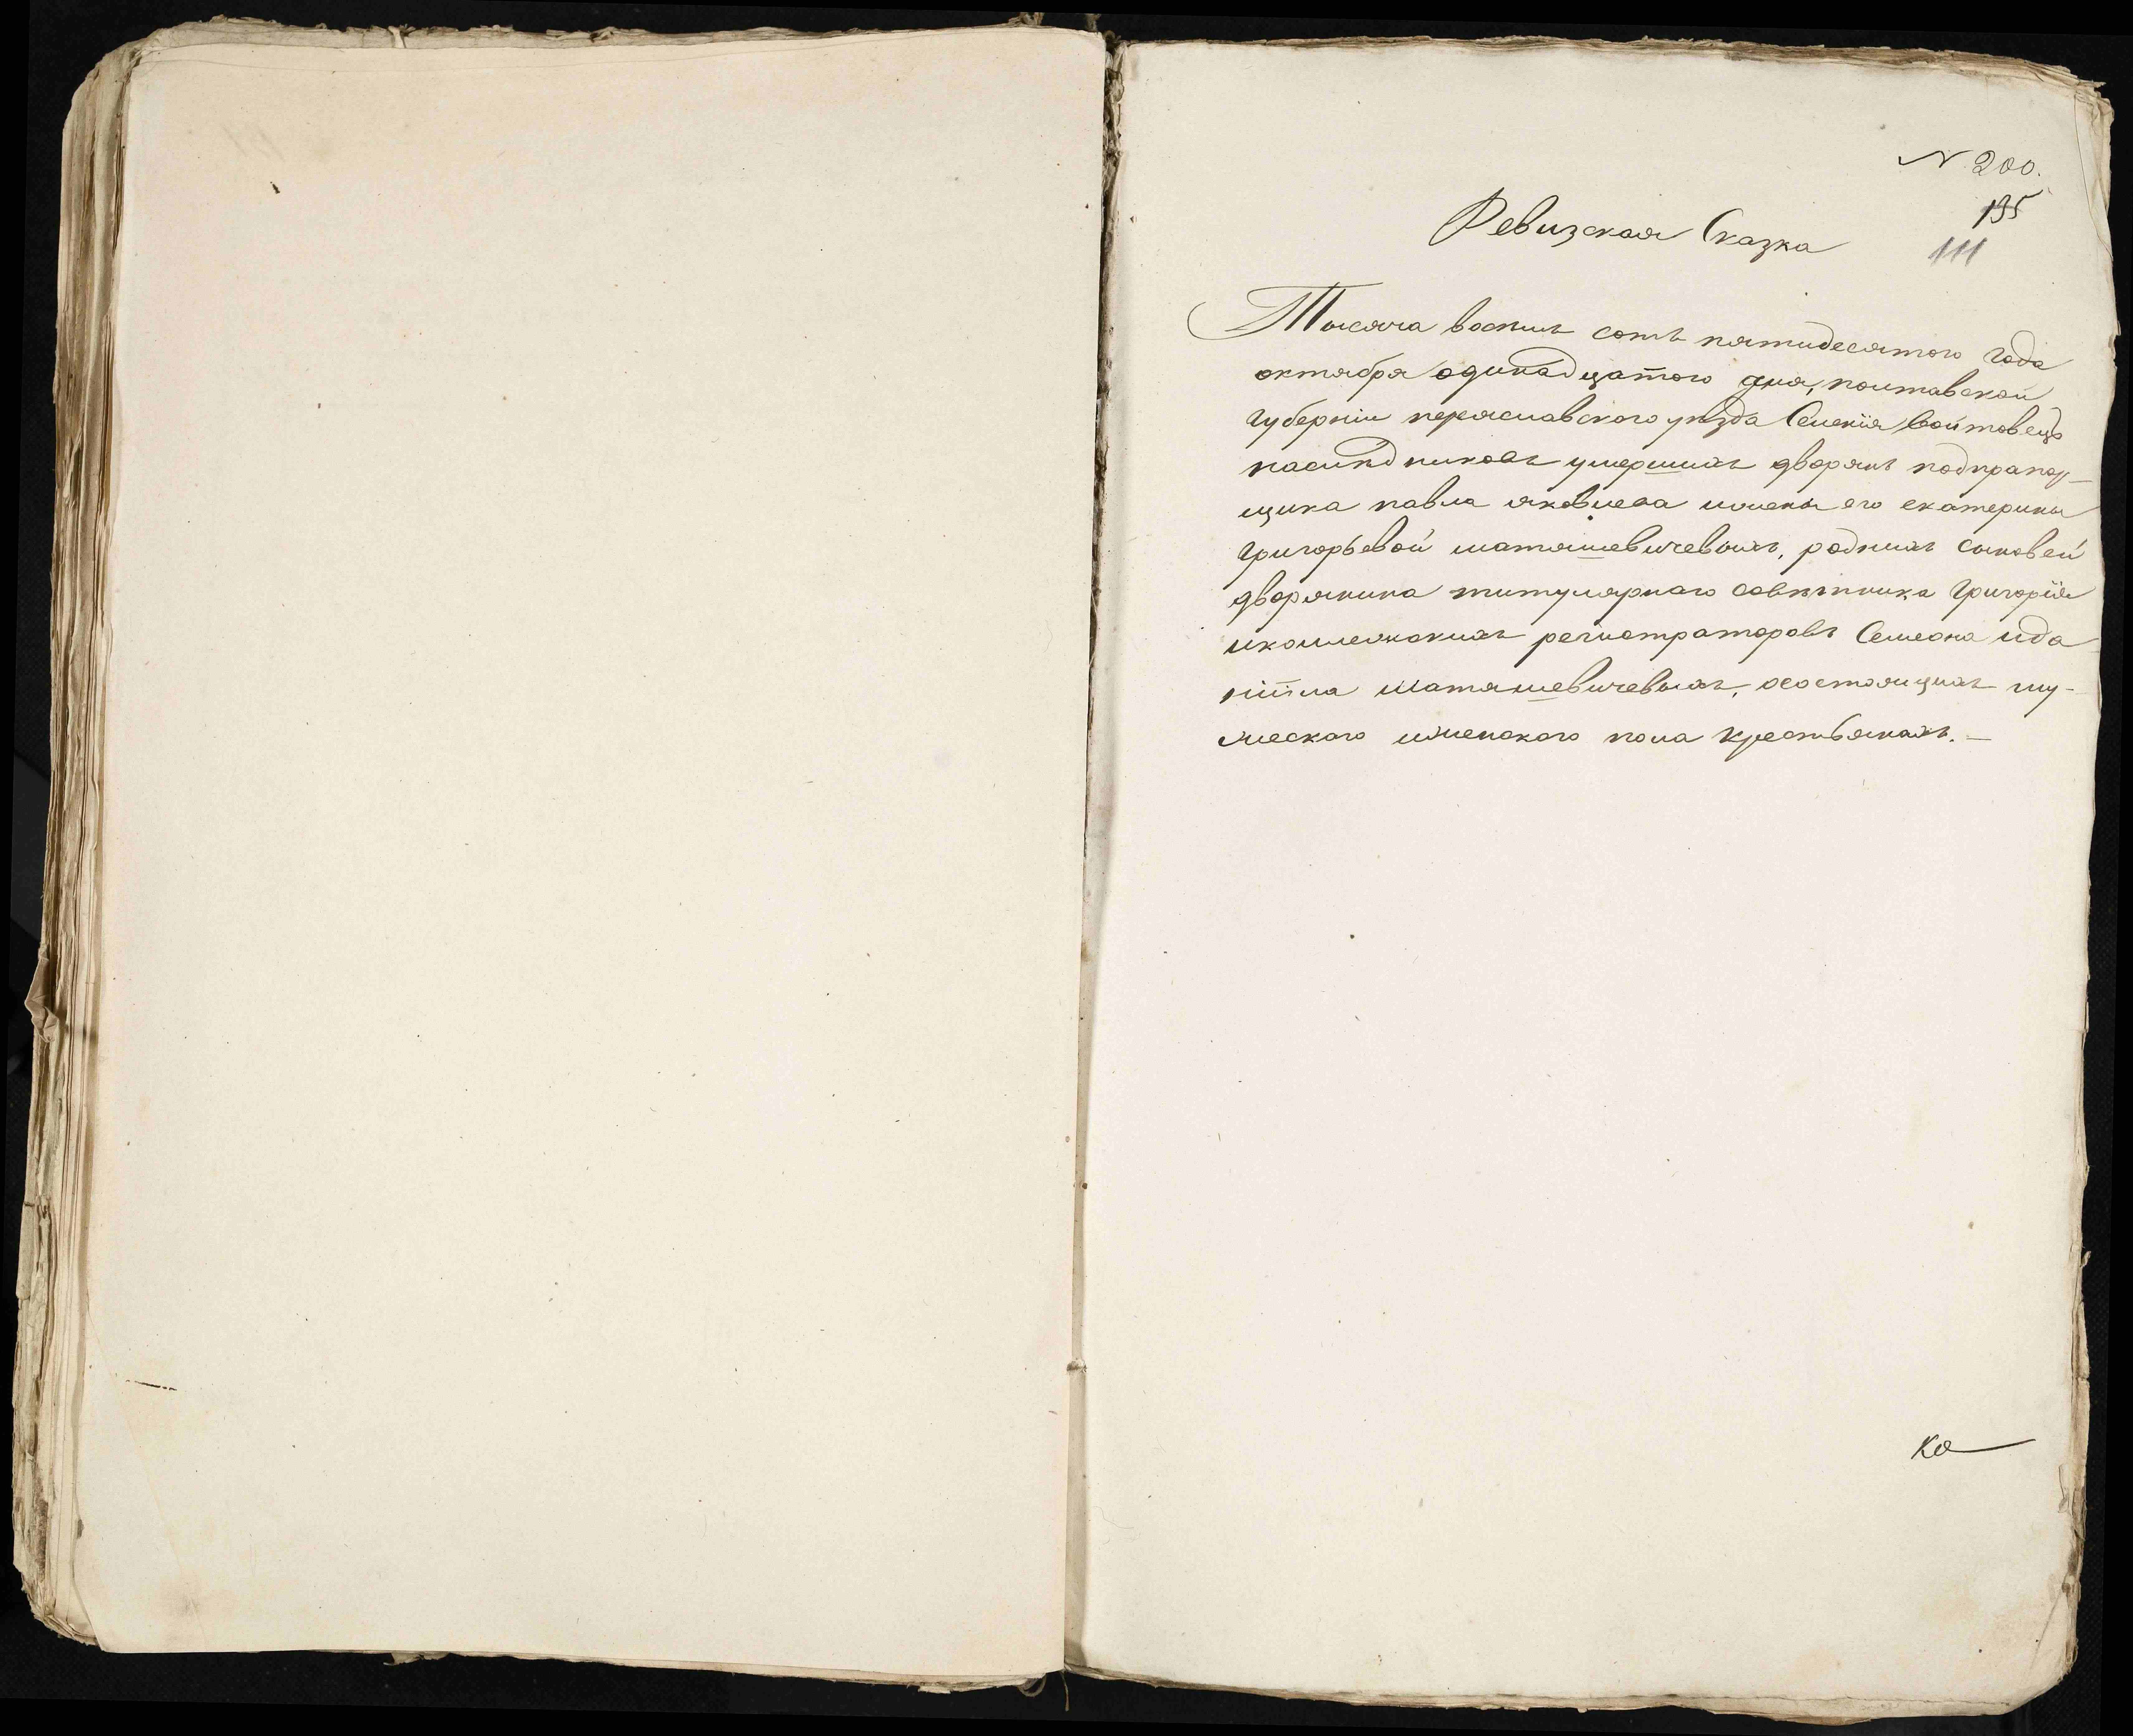 N 200.
195
111
Ревизская Сказка
Тысяча восемь сотъ пятидесятого года
октября одинадцатого дня, полтавской
Губерніи переяславского уезда Селенія войтовецъ
наследниковъ умершихъ дворянъ подпрапор-
щика павла яковлева ижены его екатерины
Григорьевой шаташевичевыхъ, родныхъ сыновей
дворянина титулярнаго советника Григорія
иколежскихъ регистраторовъ Семеона ида
ніила шаташевичевыхъ, осостоящихъ му-
жеского иженского пола крестьянахъ. —
Ко